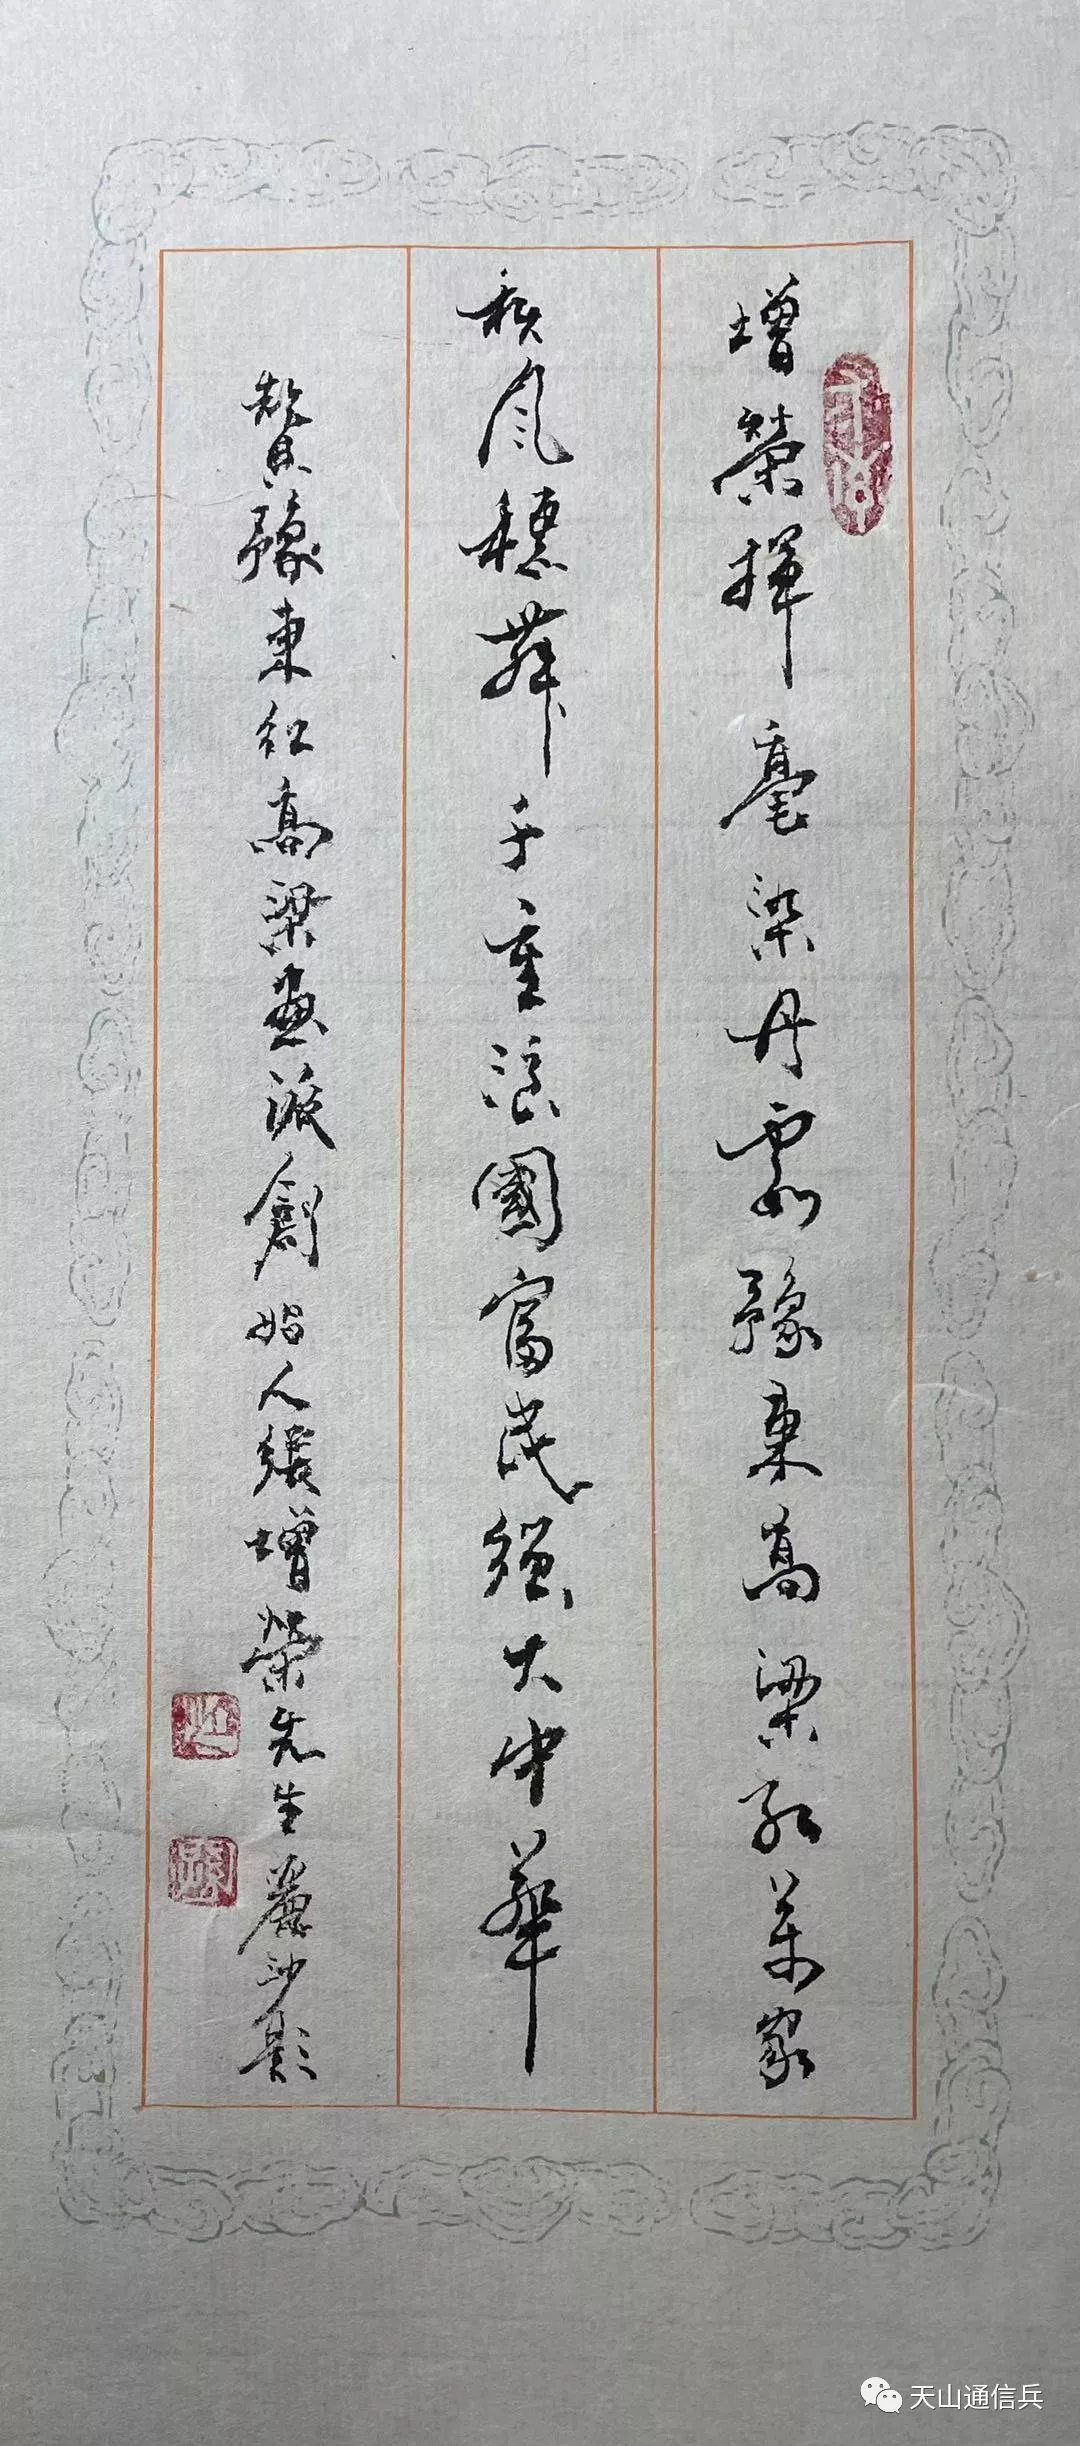 增榮揮毫染丹霞豫東高梁紅萬家
秋風穗舞千重浪國富民強大中華
贊豫東紅高梁畫派創始人張增榮先生麗沙題
天山通信兵